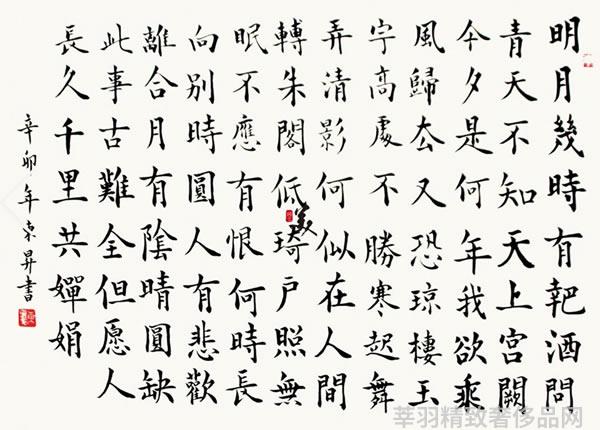 明月幾時有靶酒問
青天不知天上宮闕
今夕是何年我欲乘
風歸厺又恐瓊樓玉
宇高處不勝寒起舞
弄清影何似在人間
轉朱閣低琦户照無
眠不應有恨何時長
向别時圓人有悲歡
離合月有陰晴圓缺
此事古難全但愿人
長久千里共嬋娟
辛卯年東昇書
莘羽精致奢侈品网